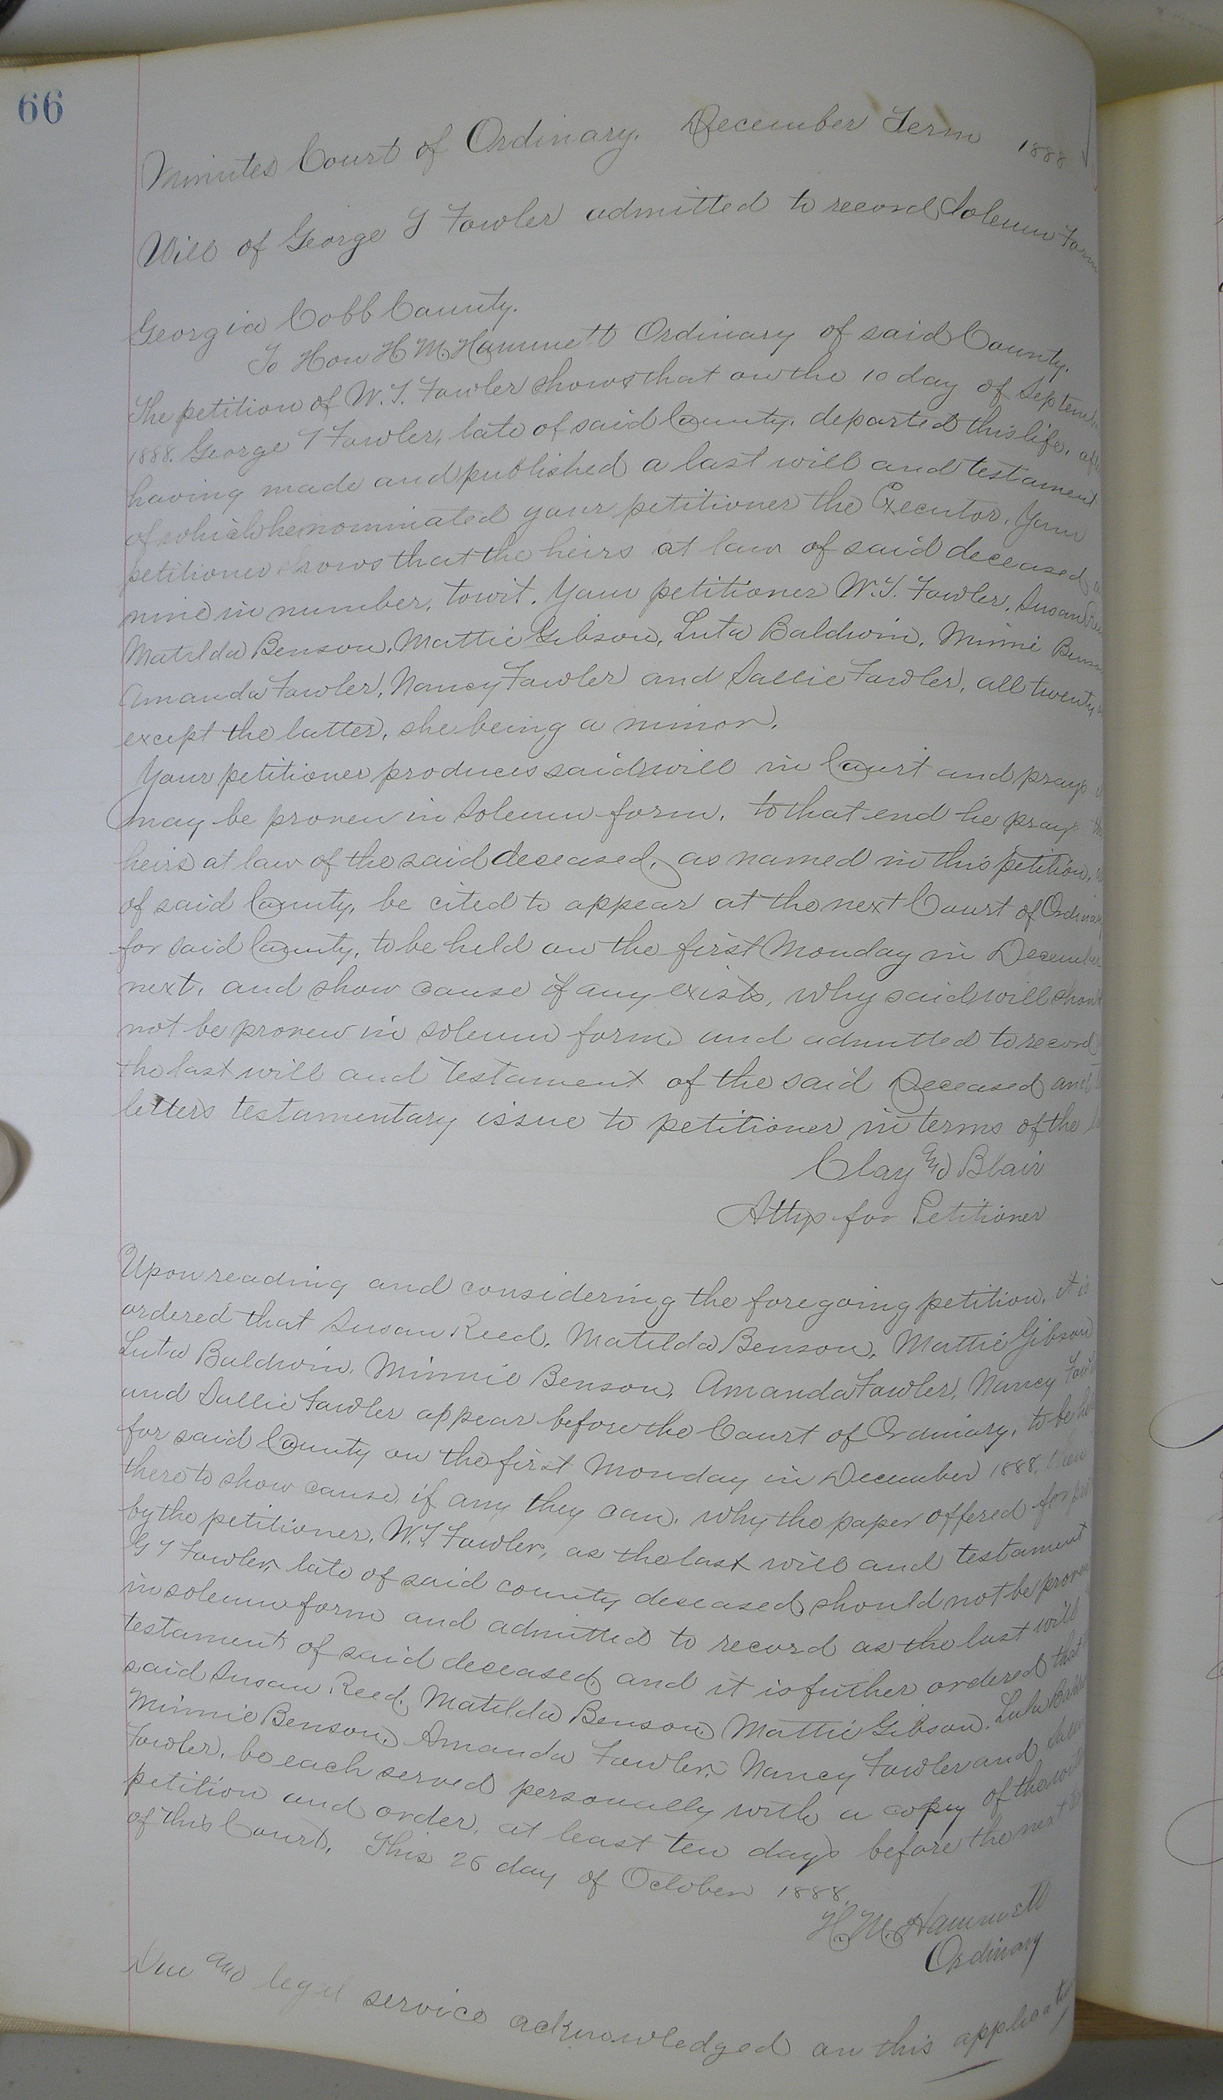 66
Minutes Court of Ordinary. December Term 1888
Will of George T Fowler admitted to record Solemn Form
Georgia Cobb County.
To Hon H M Hammett Ordinary of said County.
The petition of W. T. Fowler shows that on the 10 day of Septem
1888. George T Fowler, late of said County, departed this life, af
having made and published a last will and testament
of which he nominated your petitioner the Executor. Your
petitioner shows that the heirs at law of said deceased
nine in number, towit. Your petitioner W. T. Fowler, Susan
Matilda Benson, Mattie Gibson, Luta Baldwin, Minnie
Amanda Fowler, Nancy Fowler and Sallie Fowler, all twenty
except the latter, she being a minor.
Your petitioner produces said will in Court and prays
may be proven in Solemn form. to that end he prays
heirs at law of the said deceased, as named in this petition,
of said County, be cited to appear at the next Court of Ordinar
for said County, to be held on the first Monday in December
next, and show cause if any exists, why said will shou
not be proven in solemn form and admitted to record
the last will and testament of the said Deceased and
letters testamentary issue to petitioner in terms of the
Clay and Blair
Attys for Petitioner
Upon reading and considering the foregoing petition, it is
ordered that Susan Reed, Matilda Benson, Mattie Gibson
Luta Baldwin, Minnie Benson, Amanda Fowler, Nancy Fowl
and Sallie Fowler appear before the Court of Ordinary, to be he
for said County on the first Monday in December 1888, then
there to show cause, if any they can, why the paper offered for
by the petitioner, W. T. Fowler, as the last will and testament
G T Fowler, late of said county deceased, should not be prove
in solemn form and admitted to record as the last will
testament of said deceased, and it is futher ordered that
said Susan Reed, Matilda Benson, Mattie Gibson, Lula
Minnie Benson, Amanda Fowler, Nancy Fowler and
Fowler, be each served personally with a copy of the
petition and order, at least ten days before the next
of this Court. This 25 day of October 1888.
H. M. Hammett
Ordinary
Due and legal service acknowledged on this applicat